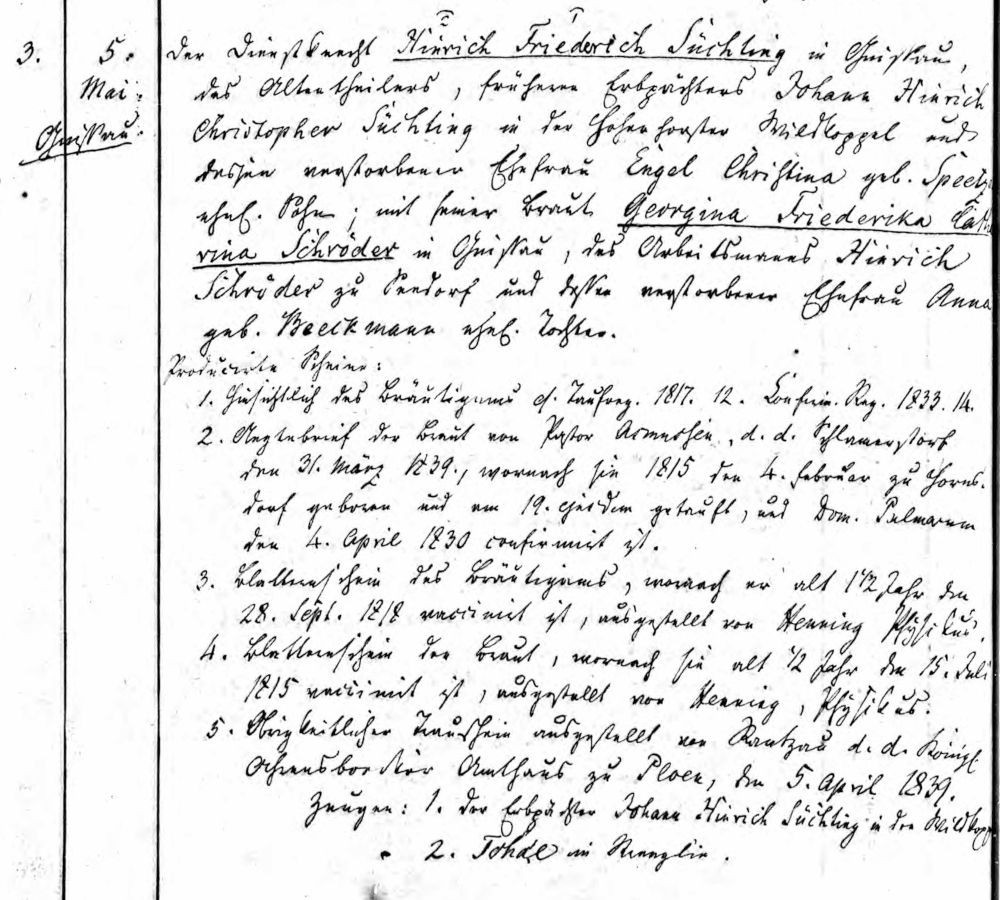 3. 5. Mai. Gnissau.
Der Dienstknecht Hinrich Friederich Süchting in Gnissau,
des Altentheilers, früheren Erbpächters Johann Hinrich
Christopher Süchting in der Hohenhorster Wildkoppel und
dessen verstorbener Ehefrau Engel Christina geb. Speetz
ehel. Sohn; mit seiner Braut Georgina Friederika Catha
rina Schröder in Gnissau, des Arbeitsmanns Hinrich
Schröder zu Seedorf und dessen verstorbener Ehefrau Anna
geb. Beeckmann ehel. Tochter.
Producirte Scheine:
1. Hinsichtlich des Bräutigams cf. Taufreg. 1817. 12. Confirm. Reg. 1833. 14.
2. Aegtebrief der Braut von Pastor Asmussen, d. d. Schlamerstorf
den 31. März 1839., wornach sie 1815 den 4. Februar zu Horns-
dorf geboren und am 19. ejusdem getauft, und Dom. Palmarum
den 4. April 1830 confirmirt ist.
3. Blatternschein des Bräutigams, wornach er alt 1 1/2 Jahr den
28. Sept. 1818 vaccinirt ist, ausgestellt von Henning Physikus.
4. Blatternschein der Braut, wornach sie alt 1/2 Jahr den 15. Juli
1815 vaccinirt ist, ausgestellt von Henning, Physikus.
5. Obrigkeitlicher Trauschein ausgestellt von Rantzau d. d. Königl.
Ahrensboecker Amthaus zu Ploen, den 5. April 1839.
Zeugen: 1. der Erbpächter Johann Hinrich Süchting in der Wildkopp
2. in